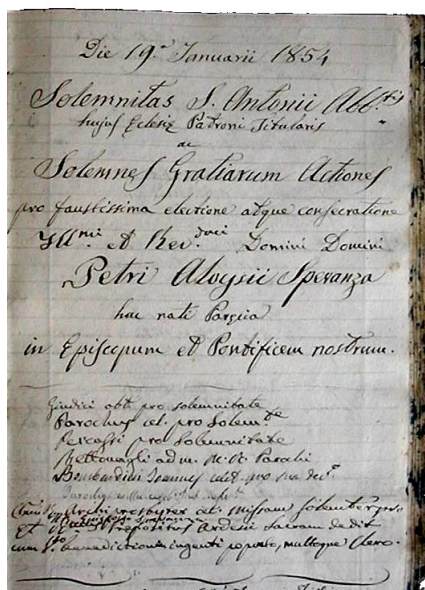 Die 19.ᵃ Januarii 1854
Solemnitas S. Antonii Abb.ᵗⁱˢ
hujus Eclesiæ Patroni Titularis
ac
Solemnes Gratiarum Actiones
pro faustissima electione atque consecratione
Ill.ᵐⁱ et Rev.ᵈᵐⁱ Domini Domini
Petri Aloysii Speranza
hac nati Parœcia
in Episcopum et Pontificem nostrum.
Giudici obt. pro solemnitate
Parochus cel. pro solem.ᵗᵉ
Percassi pro solemnitate
Bettonagli ad m.
Bombardini Joannes celeb. pro
presbyter cel. missam solemter pro
et Præpositus Ardesii sacram dedit
cum benedictione ingenti populo, multoque clero.